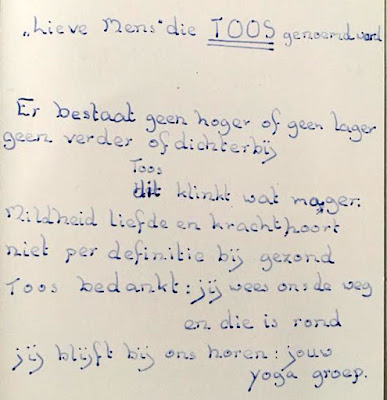 „Lieve Mens" die TOOS genoemd word
Er bestaat geen hoger of geen lager
geen verder of dichterbij
Toos
dit klinkt wat mager:
Mildheid liefde en kracht hoort
niet per definitie bij gezond
Toos bedankt: jij wees ons de weg
en die is rond
jij blijft bij ons horen: jouw
yoga groep.